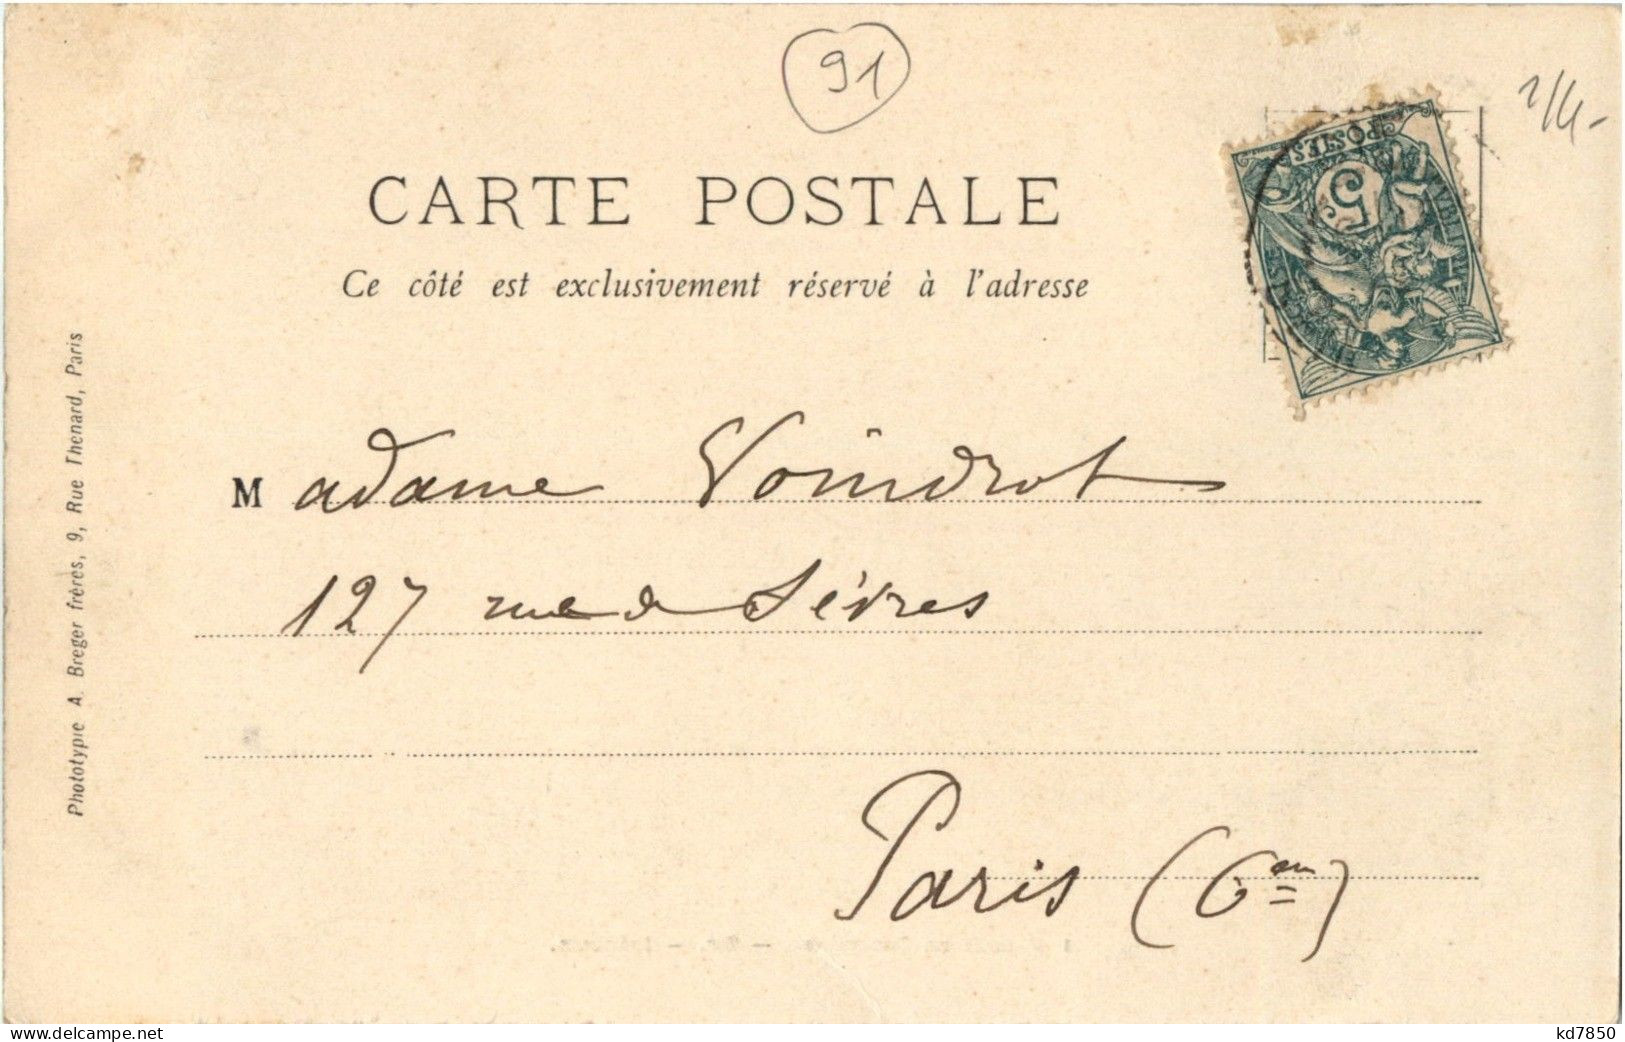 91
CARTE POSTALE
Ce côté est exclusivement réservé à l'adresse
POSTES
5
Madame Voindrot
127 rue de Sèvres
Paris (6em)
Phototypie A. Breger frères, 9, Rue Thenard, Paris
www.delcampe.net
kd7850